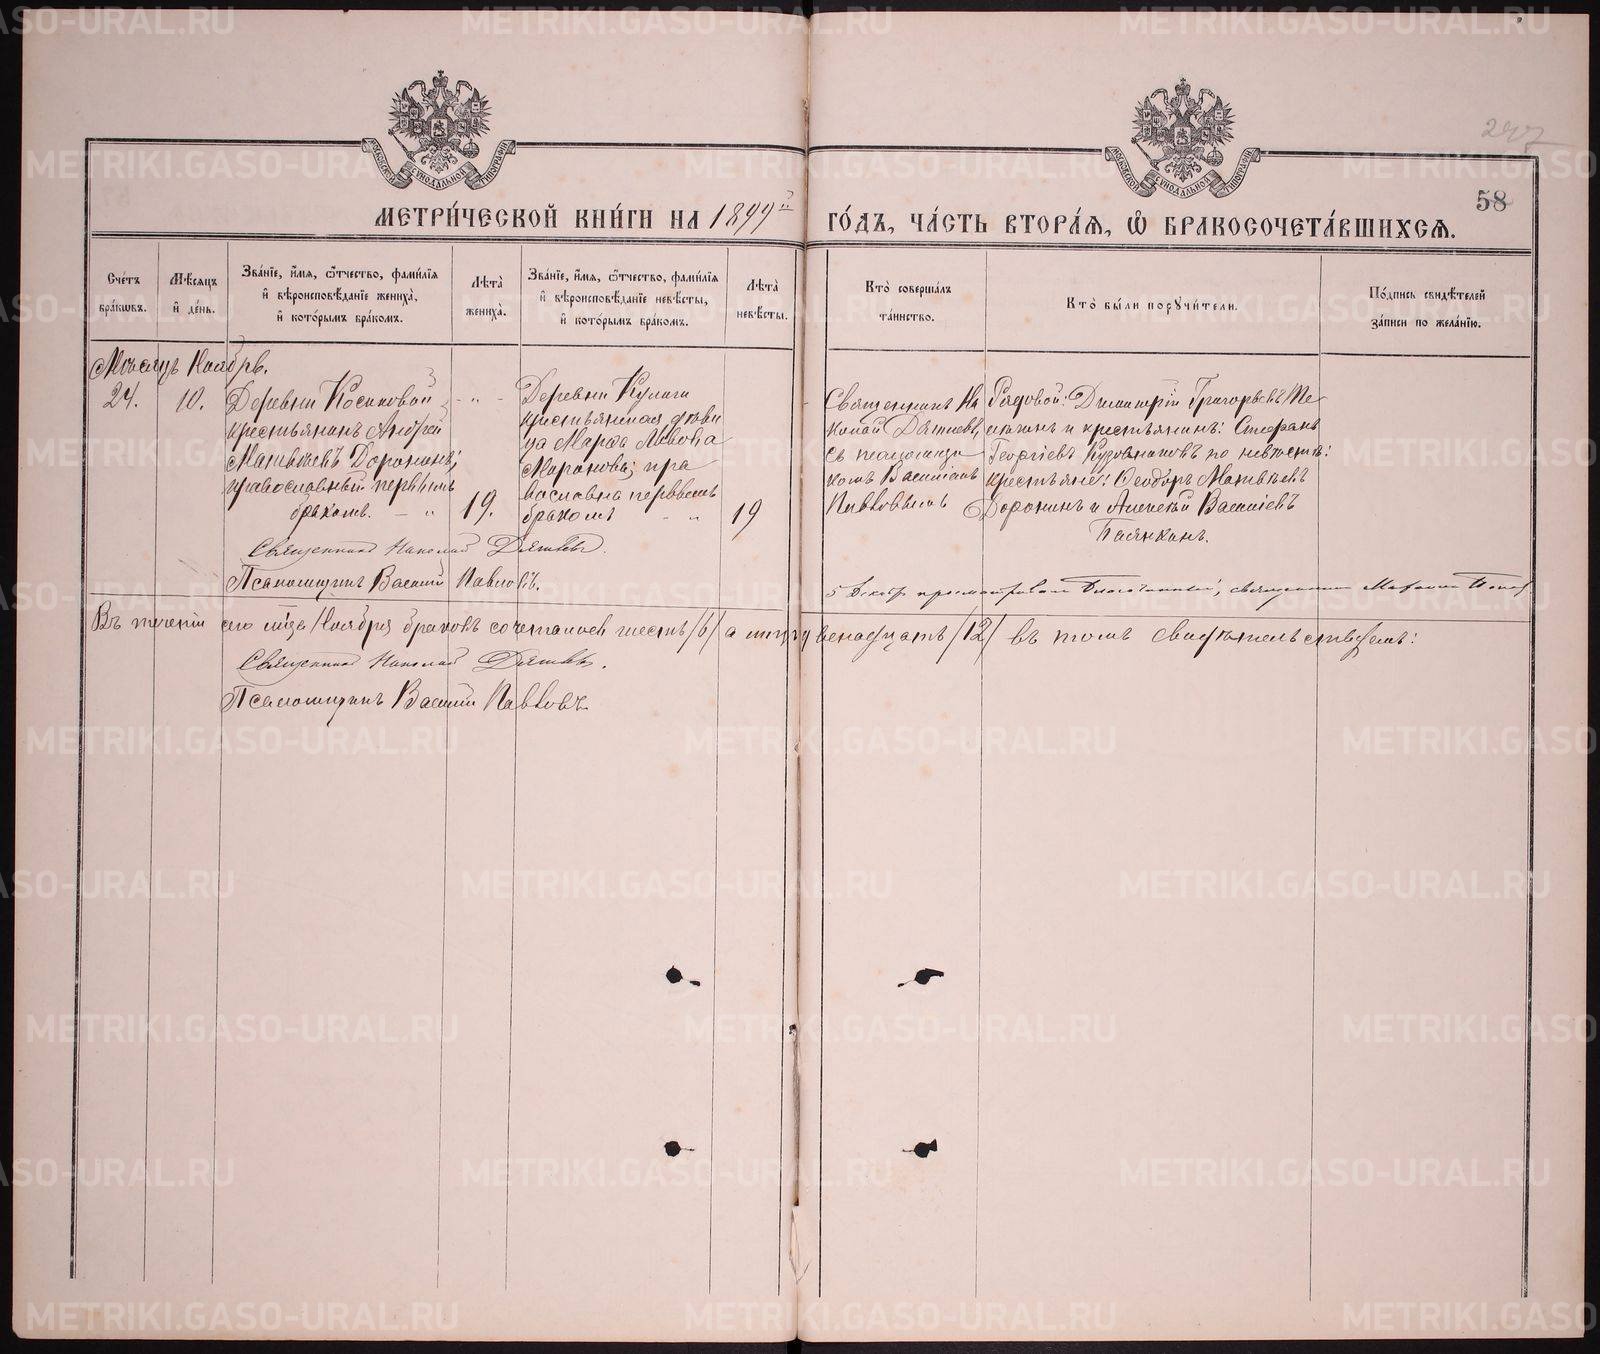 METRIKI.GASO-URAL.RU
МОСКОВСКОЙ СѴНОДАЛЬНОЙ ТИПОГРАФІИ
МОСКОВСКОЙ СѴНОДАЛЬНОЙ ТИПОГРАФІИ
58
МЕТРИ́ЧЕСКОЙ КНИ́ГИ НА 1899й ГО́ДЪ, ЧА́СТЬ ВТОРА́Я, Ѡ БРАКОСОЧЕТА́ВШИХСЯ.
Сче́тъ бра́кѡвъ.
Мѣ́сяцъ и҆ де́нь.
Зва́нїе, и҆́мя, ѻ҆́тчество, фами́лїя и҆ вѣроисповѣ́данїе жениха̀, и҆ кото́рымъ бра́комъ.
Лѣ́та жениха̀.
Зва́нїе, и҆́мя, ѻ҆́тчество, фами́лїя и҆ вѣроисповѣ́данїе невѣ́сты, и҆ кото́рымъ бра́комъ.
Лѣ́та невѣ́сты.
Кто̀ соверша́лъ та́инство.
Кто̀ бы́ли порꙋчи́тели.
По́дпись свидѣ́телей за́писи по жела́нїю.
Мѣсяцъ Ноябрь.
24.
10.
Деревни Косиковой
крестьянинъ Андрей
Матвѣевъ Доронинъ;
православный первымъ
бракомъ.
19.
Деревни Кулиги
крестьянская дѣви
ца Марѳа Львова
Миронова; пра
вославна первымъ
бракомъ
19
Священникъ Ни
колай Дягилевъ
съ псаломщи
комъ Василіемъ
Павловымъ
Рядовой: Димитрій Григорьевъ
и крестьянинъ: Стефанъ
Георгіевъ по невѣстѣ:
крестьяне: Ѳеодоръ Матвѣевъ
Доронинъ и Алексѣй Василіевъ
Священникъ Николай
Псаломщикъ Василій Павловъ.
5 Декабр. просматривалъ Благочинный, священникъ
Въ теченіи сего м҃ца Ноября браковъ сочеталось шесть /6/ а лицъ двенадцать /12/ въ томъ свидѣтельствуемъ:
Священникъ Николай
Псаломщикъ Василій Павловъ.